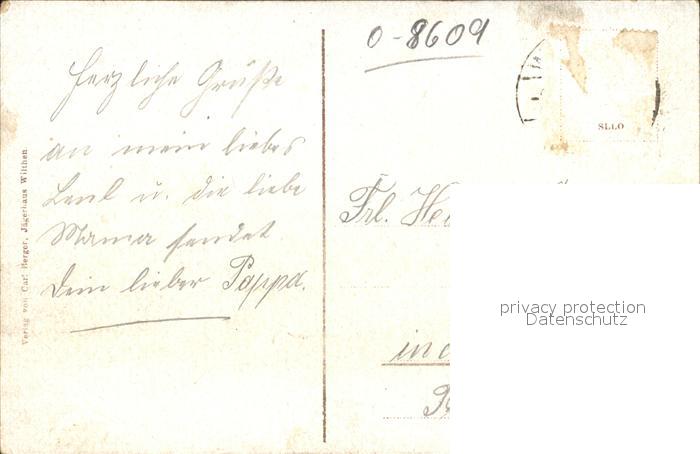 Herzliche Grüße
an mein liebes
Lenl u. die liebe
Mama sendet
Dein lieber Pappa.
Verlag von Carl Berger, Jägerhaus Wilthen
0-8609
SLLO
Frl.
privacy protection
Datenschutz
in